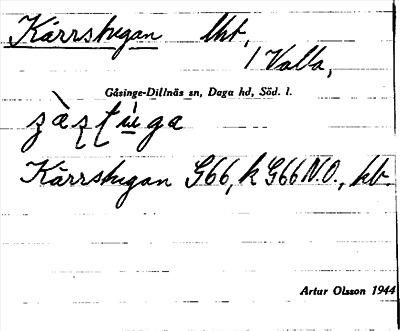 Kärrstugan lht,
/ Valla,
Gåsinge-Dillnäs sn, Daga hd, Söd. l.
Kärrstugan G66, k G66 N.O., hb.
Artur Olsson 1944